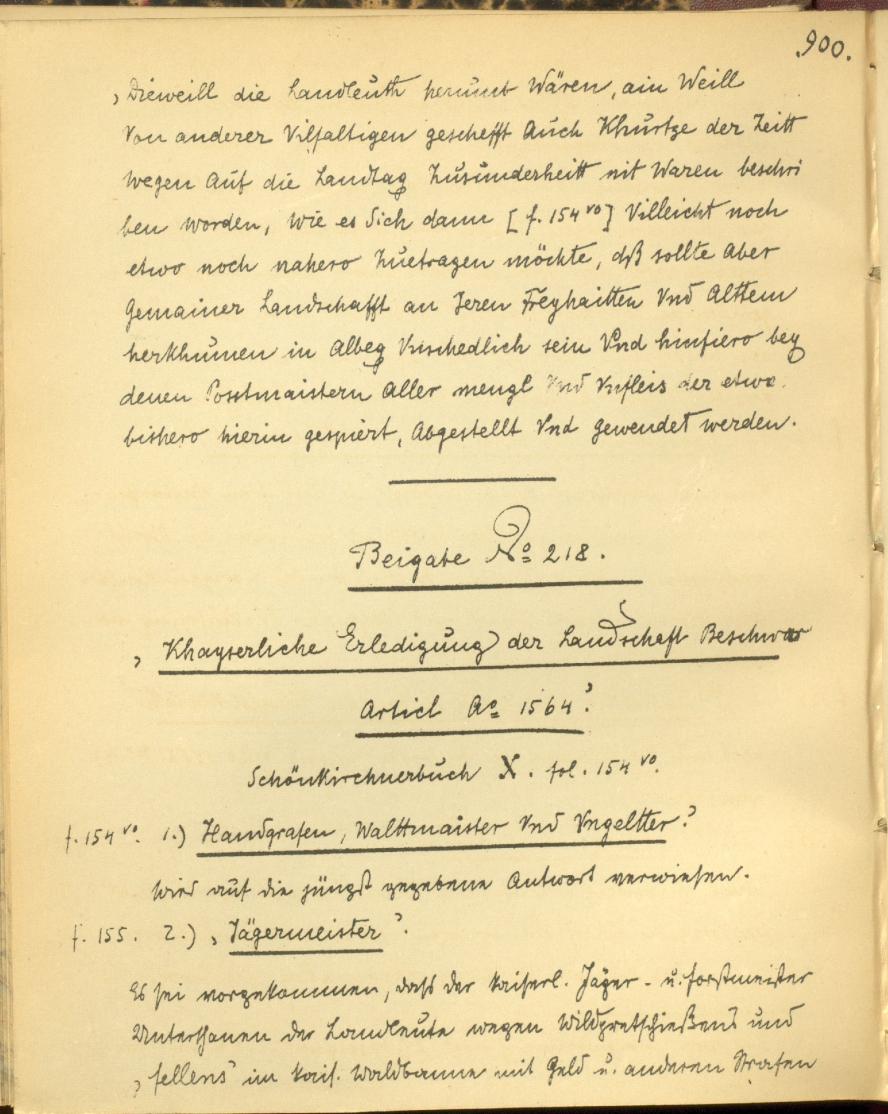 900.
„Dieweill die Landleuth herumb Wären, ain Weill
Von anderer Vilfaltigen geschefft Auch Khurtze der Zeitt
wegen Auf die Landtag Zusunderheitt nit Waren beschri
ben worden, wie es Sich dann [f. 154 vo] Villeicht noch
etwo noch nahero Zuetragen möchte, dß sollte Aber
Gemainer Landschafft an Jeren Freyhaitten Vnd Alttem
herkhumen in Albeg Vnschedlich sein Vnd hinfiero bey
denen Posstmaistern Aller mengl Vnd Vnfleis der etwo
bishero hierin gespiert, Abgestellt Vnd gewendet werden.
Beigabe No 218.
„Khayserliche Erledigung der Landschaft Beschwar
Articl Ao 1564“
Schönkirchnerbuch X. fol. 154 vo.
f. 154 vo. 1.) Handgrafen, Walttmaister Vnd Vngeltter“
Wird auf die jüngst gegebene Antwort verwiesen.
f. 155. 2.) „Jägermeister“.
Es sei vorgekommen, daß der kaiserl. Jäger- u. Forstmeister
Unterthanen der Landleute wegen Wildpretschießens und
„fellens“ im kais. Wildbanne mit Geld u. anderen Strafen